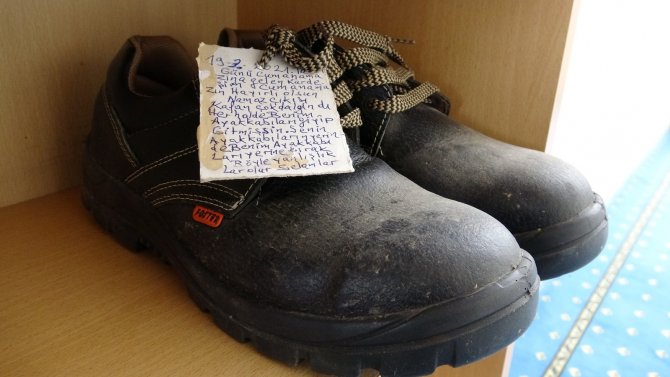 Günü Cumanama
Zına gelen Karde
şim Cumanama
Zın Hayırlı olsun
Namaz Çıkışı
Kafan çok dalgın dı
Her halde Benim
Ayakkabıları giyip
Gitmişsin. Senin
Ayakkabıları yerin
de Benim Ayakkabı
Ları yerine Bırak
Böyle yanlışlık
Lar olur Selamlar